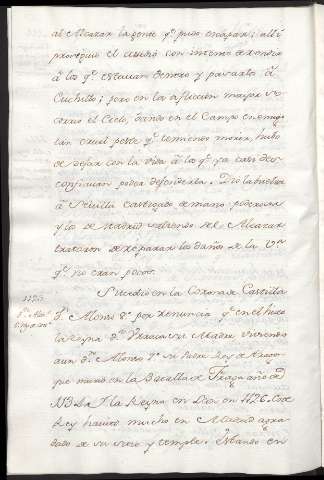 al Alcazar la gente qe pudo escapar; alli
prosiguió el asedio con intento de rendir
á los qe estauan dentro y pasarlos á
Cuchillo; pero en la afliccion mayor so
corrio el Cielo, dando en el Campo enemigo
tan cruel peste qe temiendo morir, hubo
de dejar con la vida á los qe ya casi des
confiauan poder defenderla. Dió la buelta
á Sevilla castigado de mano poderosa
y los de Madrid saliendo del Alcazar
trataron de reparar los daños de la Va
qe no eran pocos.
Sucedio en la Corona de Castilla
Dn Alonso 8º por renuncia qe en el hizo
la Reyna Da Vrraca su Madre viviendo
aun Dn Alonso
su Padre Rey de Arago
que murio en la Batalla de Fraga año de
1134 y la Reyna en 1126. Este
Rey havito mucho en Madrid agra
dado de su sitio y temple. Estando en